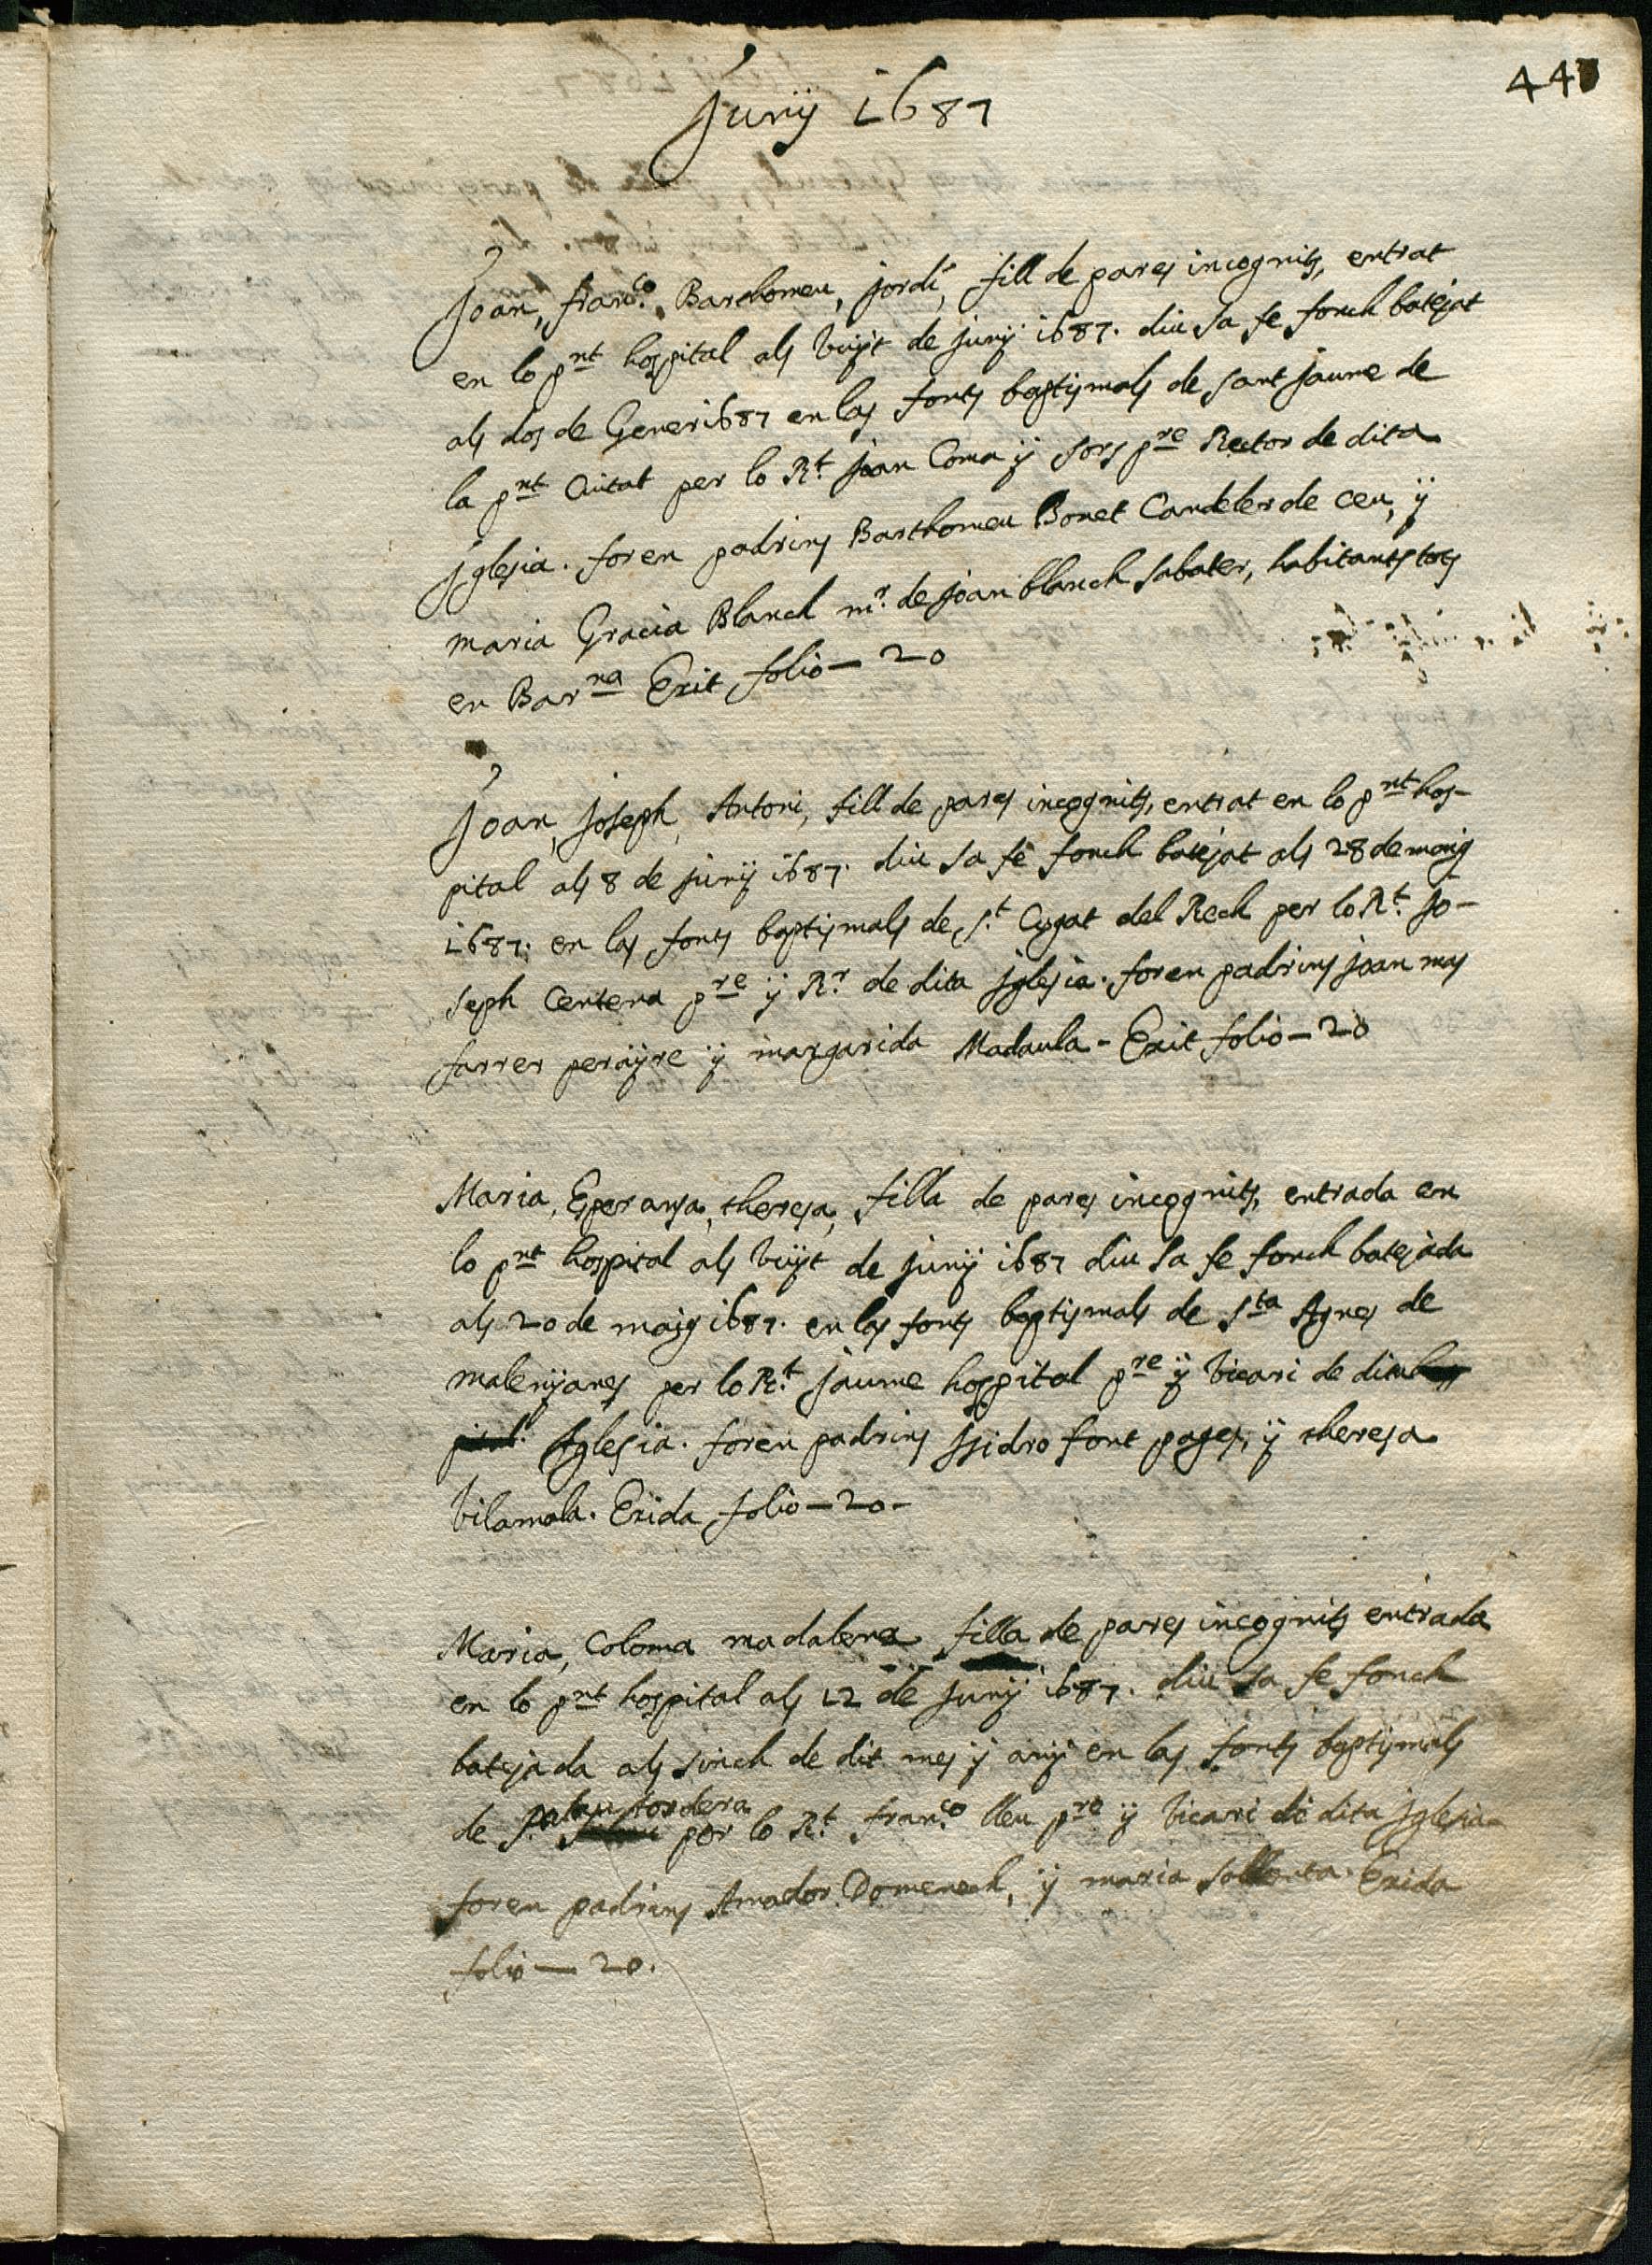 Juny 1687
Joan, Fran.co Barthomeu, Jordi, fill de pares incognits, entrat
en lo pnt hospital als vuyt de juny 1687. diu sa fe fonch batejat
als dos de Gener 1687 en las fonts baptismals de sant Jaume de
la pnt Ciutat per lo Rt. Joan Coma y sors pre Rector de dita
Iglesia. foren padrins Barthomeu Bonet Candeler de ceu, y
maria Gracia Blanch mr. de Joan blanch sabater, habitants tots
en Barna Exit folio — 20
Joan, Joseph, Antoni, fill de pares incognits, entrat en lo pnt hos-
pital als 8 de juny 1687. diu sa fe fonch batejat als 28 de maig
1687. en las fonts baptismals de St. Cugat del Rech per lo Rt. Jo-
seph Centena pre y Rr. de dita Iglesia. foren padrins Joan mas
farrer perayre y margarida Madaula - Exit folio - 20
Maria, Esperansa, theresa, filla de pares incognits, entrada en
lo pnt hospital als vuyt de juny 1687 diu sa fe fonch batejada
als 20 de maig 1687. en las fonts baptismals de Sta Agnes de
malenyanes per lo Rt. Jaume hospital pre y vicari de dita
Iglesia. foren padrins Isidro font pages, y theresa
Vilamala. Exida folio - 20 -
Maria, Coloma madalena filla de pares incognits entrada
en lo pnt hospital als 12 de juny 1687. diu sa fe fonch
batejada als sinch de dit mes y any en las fonts baptismals
de Palautordera per lo Rt. Fran.co lleu pre y vicari de dita Iglesia
foren padrins Amador Domenech, y maria Exida
folio — 20.